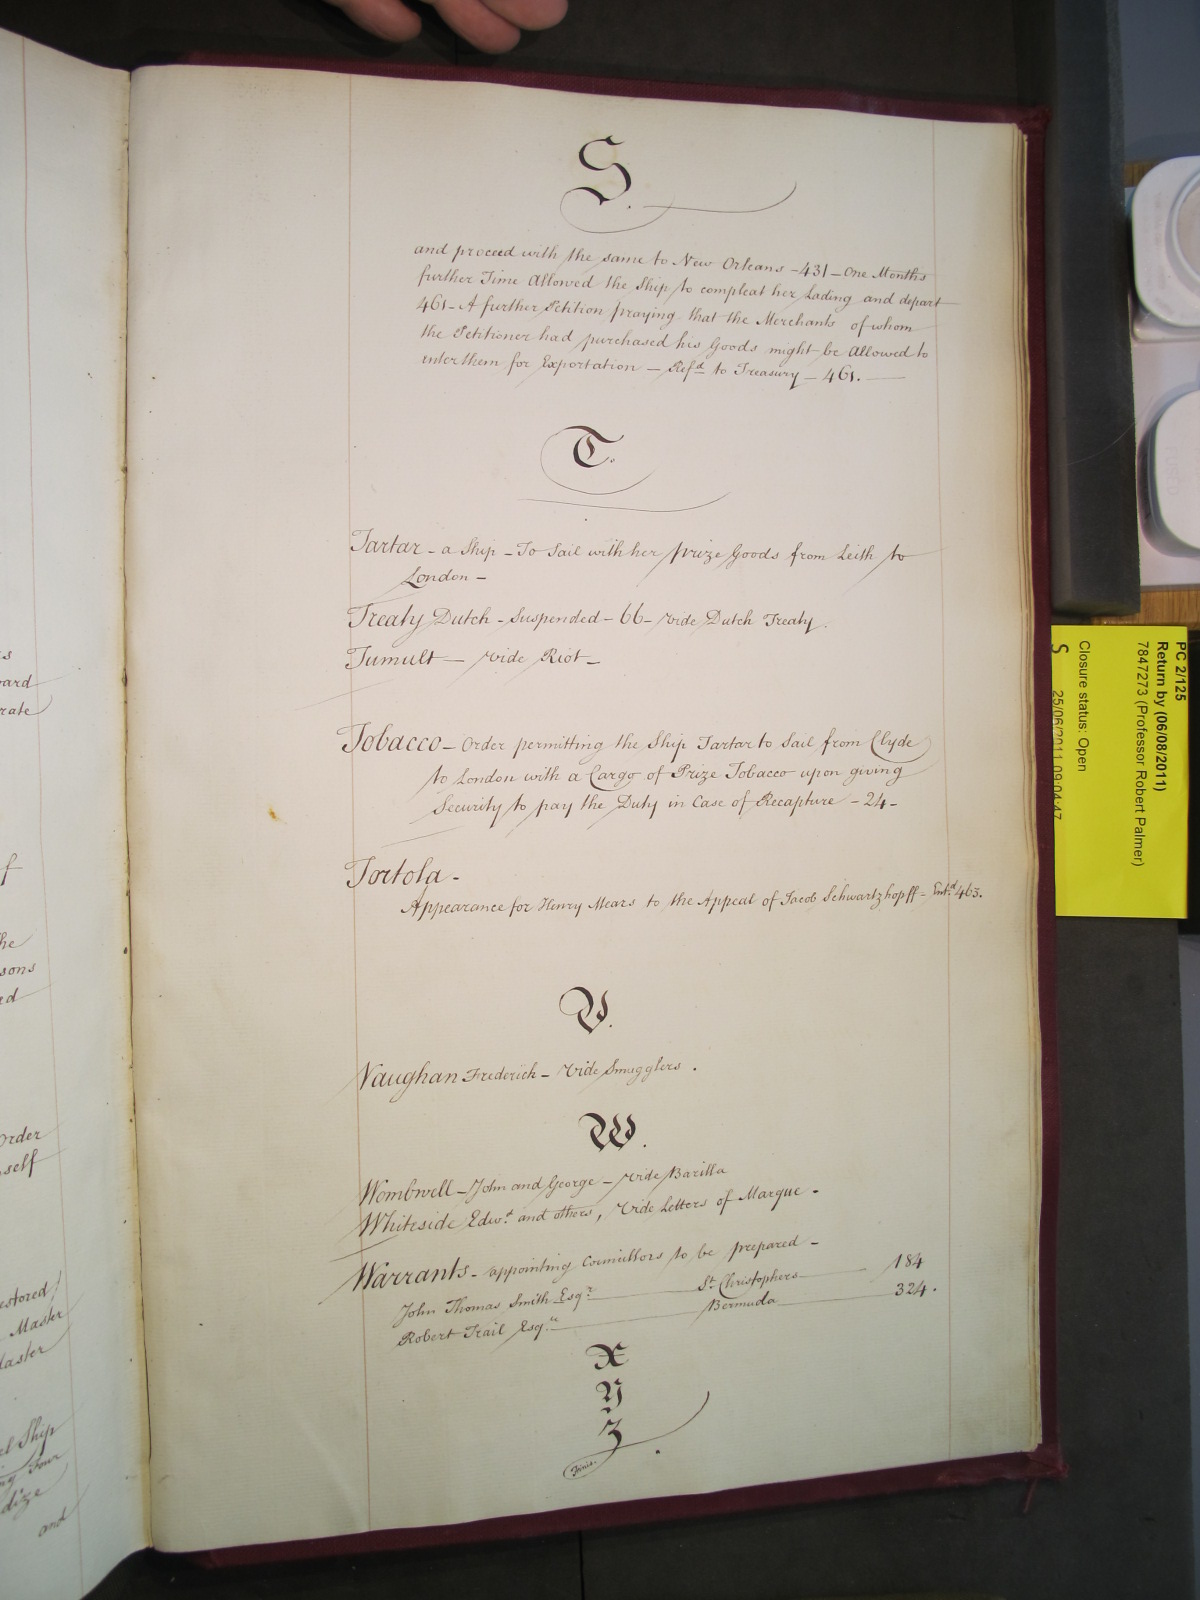 S.
and proceed with the same to New Orleans - 431 - One Months
further Time Allowed the Ship to compleat her Lading and depart
461 - A further Petition praying that the Merchants of whom
the Petitioner had purchased his Goods might be Allowed to
enter them for Exportation - Refd to Treasury - 461.
T.
Tartar - a Ship - To Sail with her prize Goods from Leith to
London -
Treaty Dutch - Suspended - 66 - vide Dutch Treaty.
Tumult - vide Riot -
Tobacco - Order permitting the Ship Tartar to Sail from Clyde
to London with a Cargo of Prize Tobacco upon giving
Security to pay the Duty in Case of Recapture - 24 -
Tortola -
Appearance for Henry Mears to the Appeal of Jacob Schwartzhopff - Entd. 463.
V.
Vaughan Frederick - Vide Smugglers.
W.
Wombwell - John and George - vide Barilla
Whiteside Edwd. and others, Vide Letters of Marque -
Warrants - appointing Councillors to be prepared -
John Thomas Smith Esqr. St. Christophers 184
Robert Trail Esqre. Bermuda 324.
X
Y
Z.
Finis.
s
oard
rate
f
the
sons
ad
Order
self
estored
Master
Master
el Ship
ng Four
dize
and
PC 2/125
Return by (06/08/2011)
7847273 (Professor Robert Palmer)
Closure status: Open
S 25/06/2011 09:04:47
FUSED